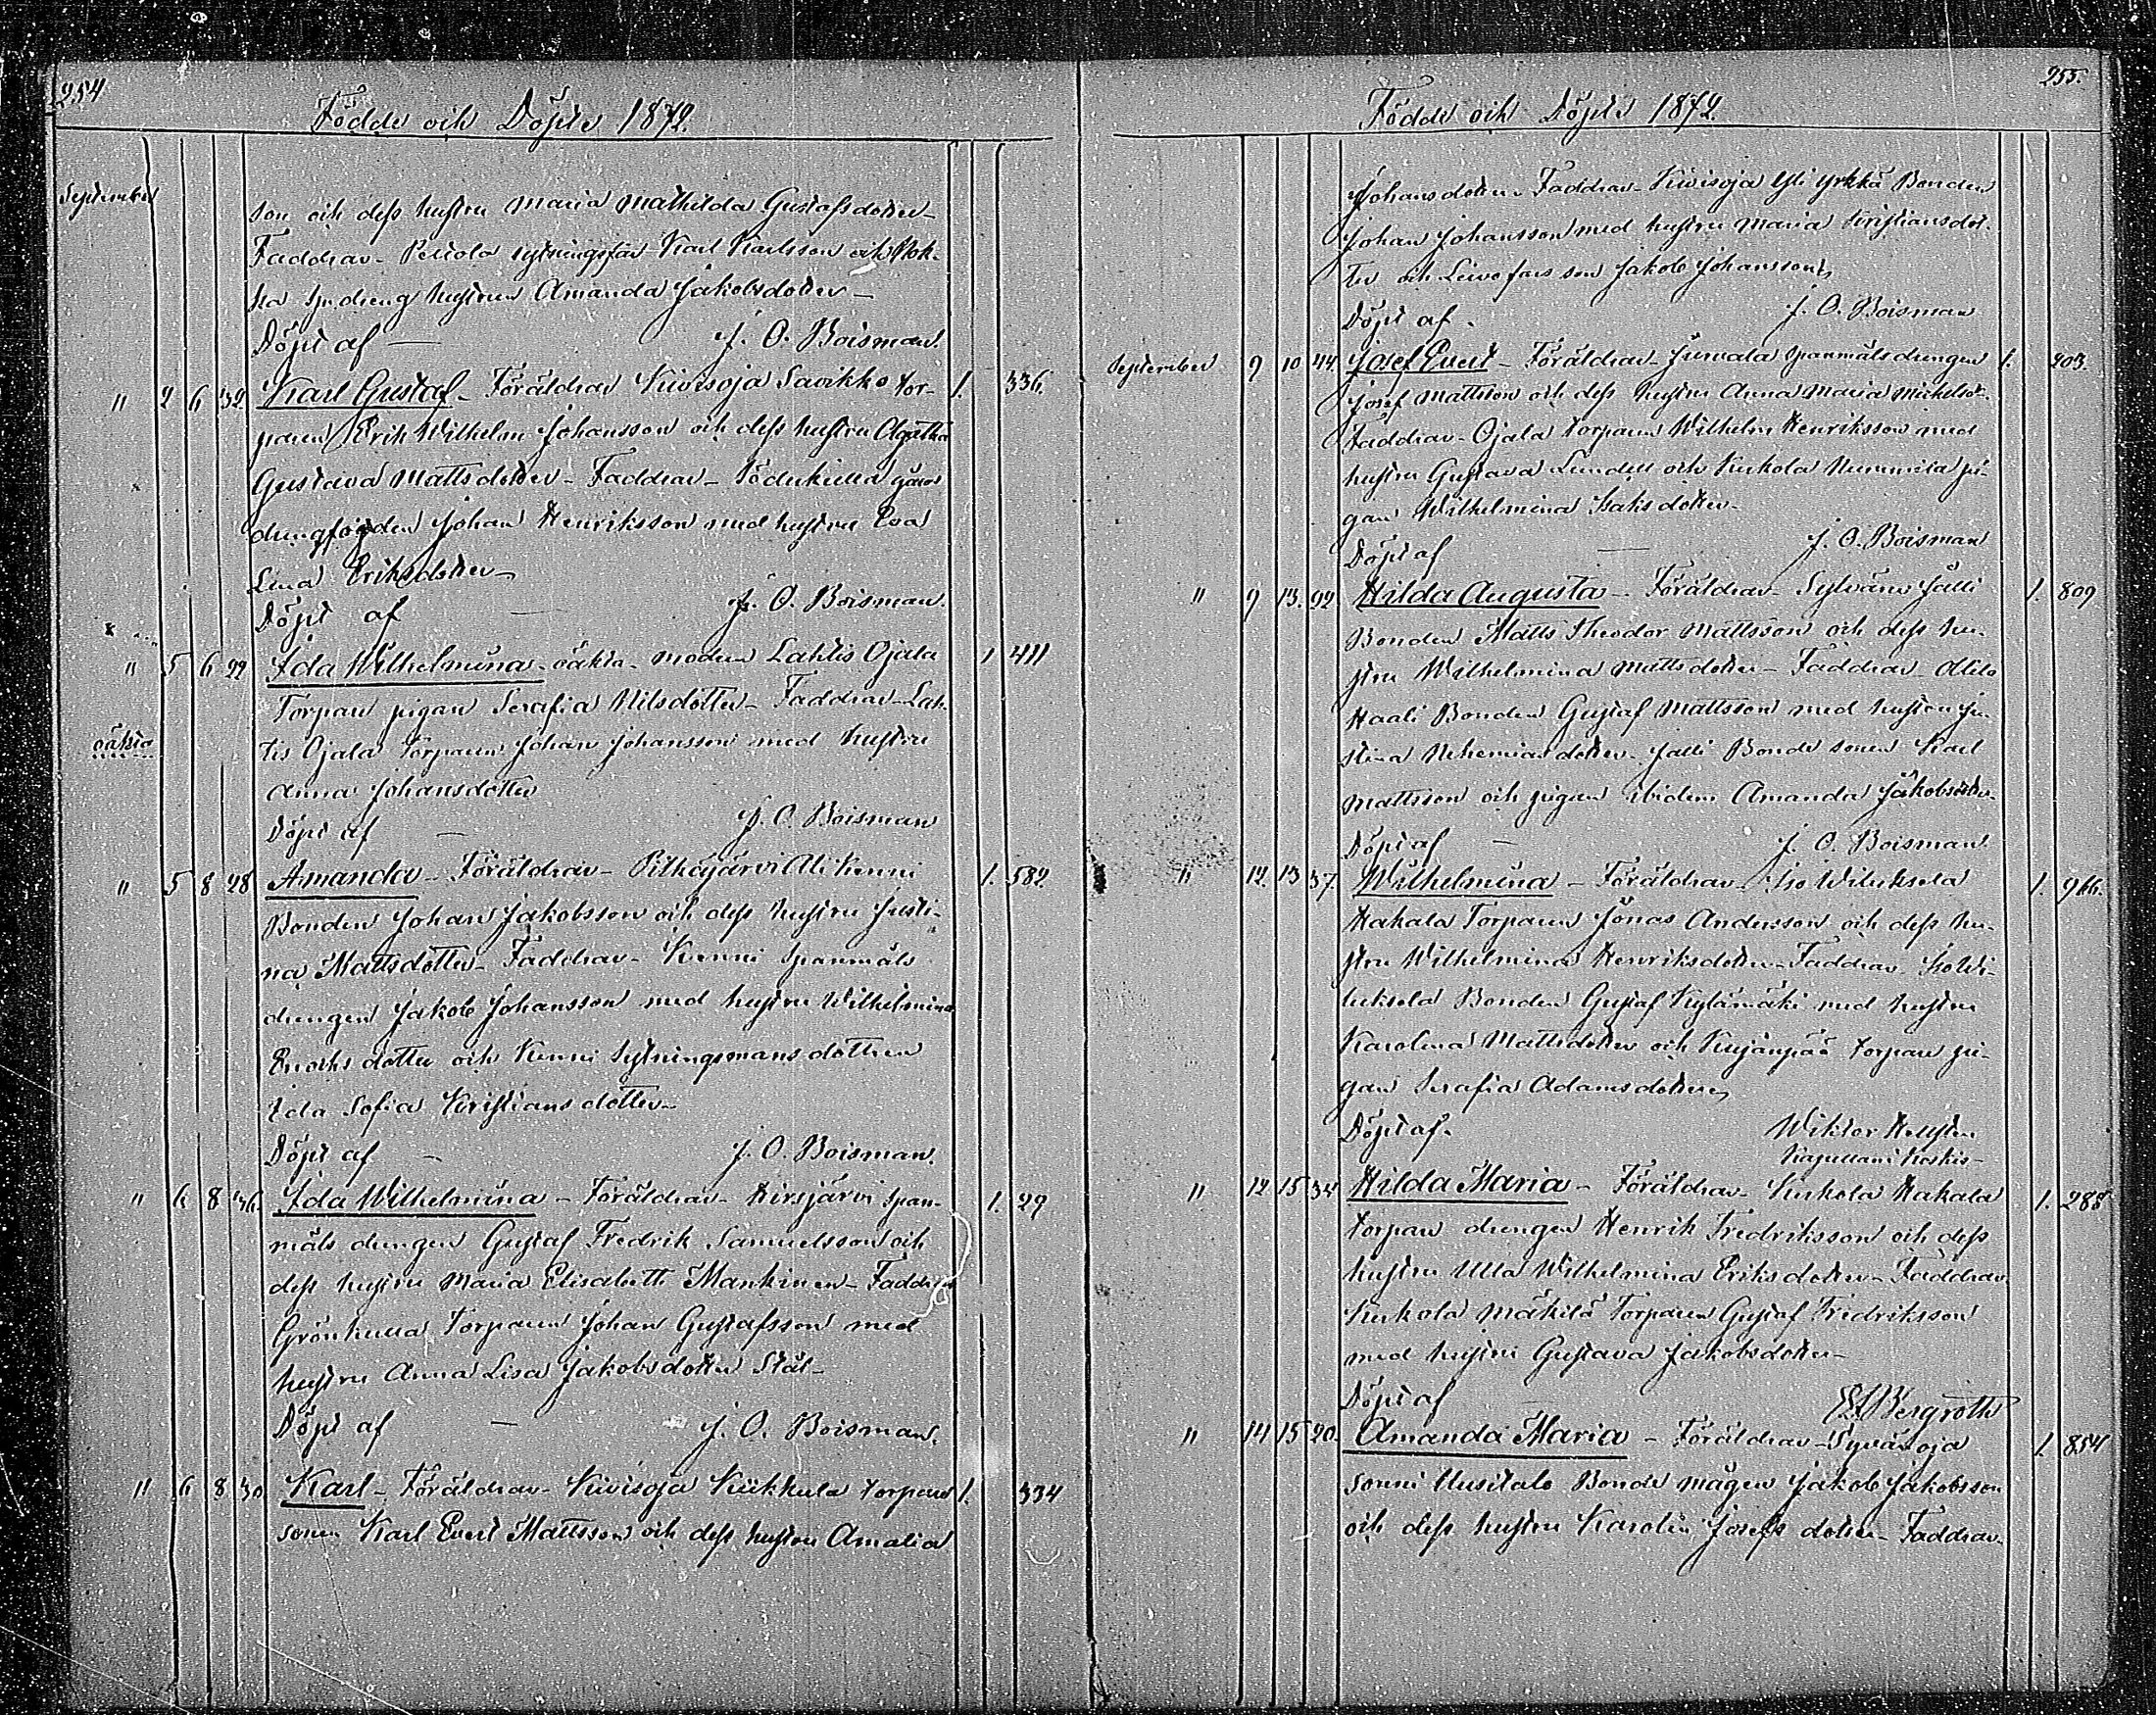 254
Födde och Döpte 1872.
September
son och dess hustru Maria Mathilda Gustafsdotter
Faddrar - sytningsfar Karl Karlsson och
hustrun Amanda Jakobsdotter -
Döpt af — J. O. Boisman.
" 2 6 32 Karl Gustaf - Föräldrar Kivisoja Savikko tor- 1. 336.
paren Erik Wilhelm Johansson och dess hustru Agatha
Gustava Mattsdotter - Faddrar -
Johan Henriksson med hustru Eva
Lina Eriksdotter -
Döpt af — J. O. Boisman.
" 5 6 22 Ida Wilhelmina - oäkta - modren Lahtis Ojala 1 411
Torpare pigan Serafia Nilsdotter - Faddrar - Lah-
oäkta
tis Ojala Torparen Johan Johansson med hustru
Anna Johansdotter
Döpt af — J. O. Boisman
" 5 8 28 Amanda - Föräldrar - Pitkäjärvi Ali Kenni 1. 582.
Bonden Johan Jakobsson och dess hustru Justi-
na Mattsdotter - Faddrar - Kenni Spanmåls
drengen Jakob Johansson med hustru Wilhelmina
Enochs dotter och Kenni Sytningsmans dottren
Ida Sofia Kristians dotter -
Döpt af — J. O. Boisman.
" 6 8 36. Ida Wilhelmina - Föräldrar - Hirsjärvi Span- 1. 29
måls drengen Gustaf Fredrik Samuelsson och
dess hustru Maria Elisabeth Mankinen - Faddrar
Torparen Johan Gustafsson med
hustru Anna Lisa Jakobsdotter Stål -
Döpt af — J. O. Boisman.
" 6 8 30 Karl - Föräldrar - Kivisoja Kiikkula torpare 1. 334
sonen Karl Evert Mattsson och dess hustru Amalia
255.
Födde och Döpte 1872.
Johansdotter - Faddrar - Kivisoja Yli Yrkkä Bonden
Johan Johansson med hustru Maria Kristiansdot-
ter och son Jakob Johansson
Döpt af. J. O. Boisman
September 9 10 44. Josef Evert - Föräldrar - Jumala Spanmålsdrengen 1. 203.
Josef Mattsson och dess hustru Anna Maria Mickelsdr.
Faddrar - Ojala torparen Wilhelm Henriksson med
hustru Gustava Lundell och Kerkola Nummila pi-
gan Wilhelmina Isaksdotter -
Döpt af — J. O. Boisman
" 9 13. 22 Hilda Augusta - Föräldrar - Sylvänä Jälli 1. 809
Bonden Matts Theodor Mattsson och dess hu-
stru Wilhelmina Mattsdotter - Faddrar -
Haali Bonden Gustaf Mattsson med hustru Ju-
stina Nehemiasdotter - Jälli Bonde sonen Karl
Mattsson och pigan ibidem Amanda Jakobsdotter
Döpt af — J. O. Boisman
" 12. 13 37. Wilhelmina - Föräldrar - Iso Wiluksela 1. 966.
Hakala Torparen Jonas Andersson och dess hu-
stru Wilhelmina Henriksdotter - Faddrar - Iso Wi-
luksela Bonden Gustaf Kylämäki med hustru
Karolina Mattsdotter och Kujanpää torpare pi-
gan Serafia Adamsdotter
Döpt af. Wiktor Hellsten
Kapellan i Koskis -
" 12 15 34 Hilda Maria - Föräldrar - Kerkola Hakala 1. 288
torpare drengen Henrik Fredriksson och dess
hustru Ulla Wilhelmina Eriksdotter - Faddrar
Kerkola Mäkilä Torparen Gustaf Fredriksson
med hustru Gustava Jakobsdotter -
Döpt af Bergroth
" 14 15 20. Amanda Maria - Föräldrar - Syvänoja 1. 854
Sonni Uusitalo Bonde mågen Jakob Jakobsson
och dess hustru Karolin Josefs dotter - Faddrar